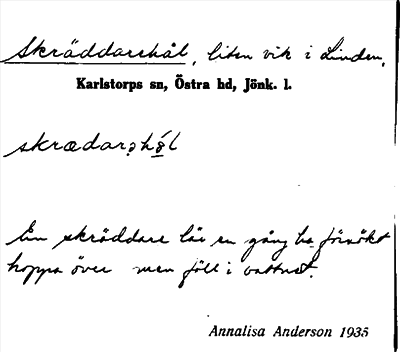 Skräddarehål, liten vik i Linden,
Karlstorps sn, Östra hd, Jönk. l.
skrædarəhǻl
En skräddare lär en gång ha försökt
hoppa över men föll i vattnet.
Annalisa Anderson 1935